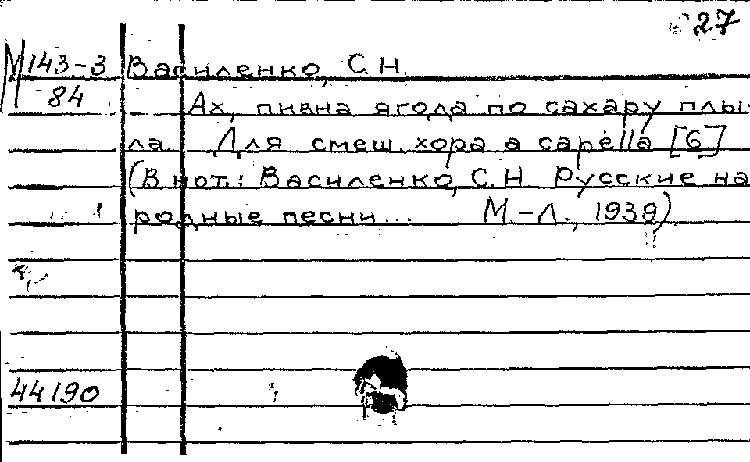 27
М143-3 Василенко, С.Н.
84 Ах, пьяна ягода по сахару плы-
ла. Для смеш. хора a capella [6]
(В нот.: Василенко, С.Н. Русские на
родные песни... М.-Л., 1939)
44190